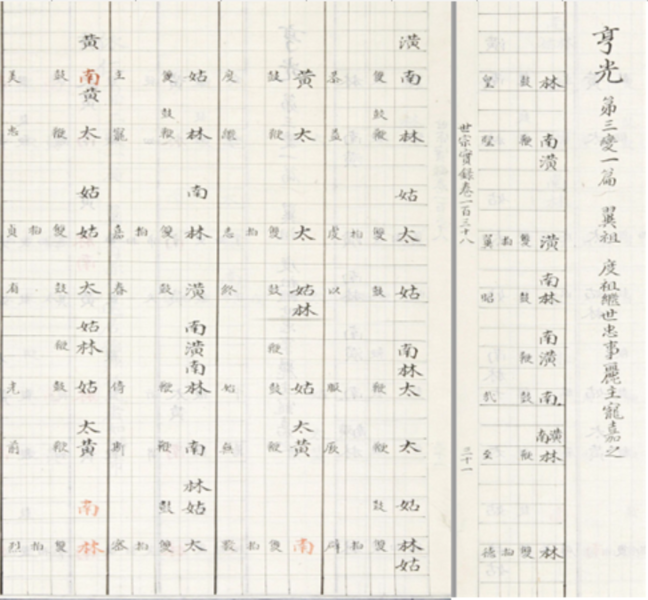 亨光 第三變一篇 翼祖 度祖繼世忠事麗主寵嘉之
林 南潢 潢 南林 南潢 南 南潢林 林
鼓 鞭 雙 鼓 鞭 鼓 鞭 雙
拍 拍
皇 聖 翼 昭 德
世宗實錄卷一百三十八 三十一
潢南林姑太姑南林太太姑林姑
雙 鼓鞭 雙 鼓 鞭 鞭 鼓 雙
拍 拍
益 虔 以 服 厥 辟
黃太太姑林姑太黃南
鼓 鞭 雙 鼓 鞭 鼓 鞭 雙
拍 拍
度 繼 志 終 始 無 斁
姑林南林潢南潢南林南林姑太
雙 鼓鞭 雙 鼓 鞭 鞭 鼓 雙
拍 拍
主 寵 嘉 春 倚 斯
黃南黃太姑姑太姑林姑太黃南林
鼓 鞭 雙 鼓 鞭 鼓 鞭 雙
拍 拍
美 忠 貞 有 光 前 烈